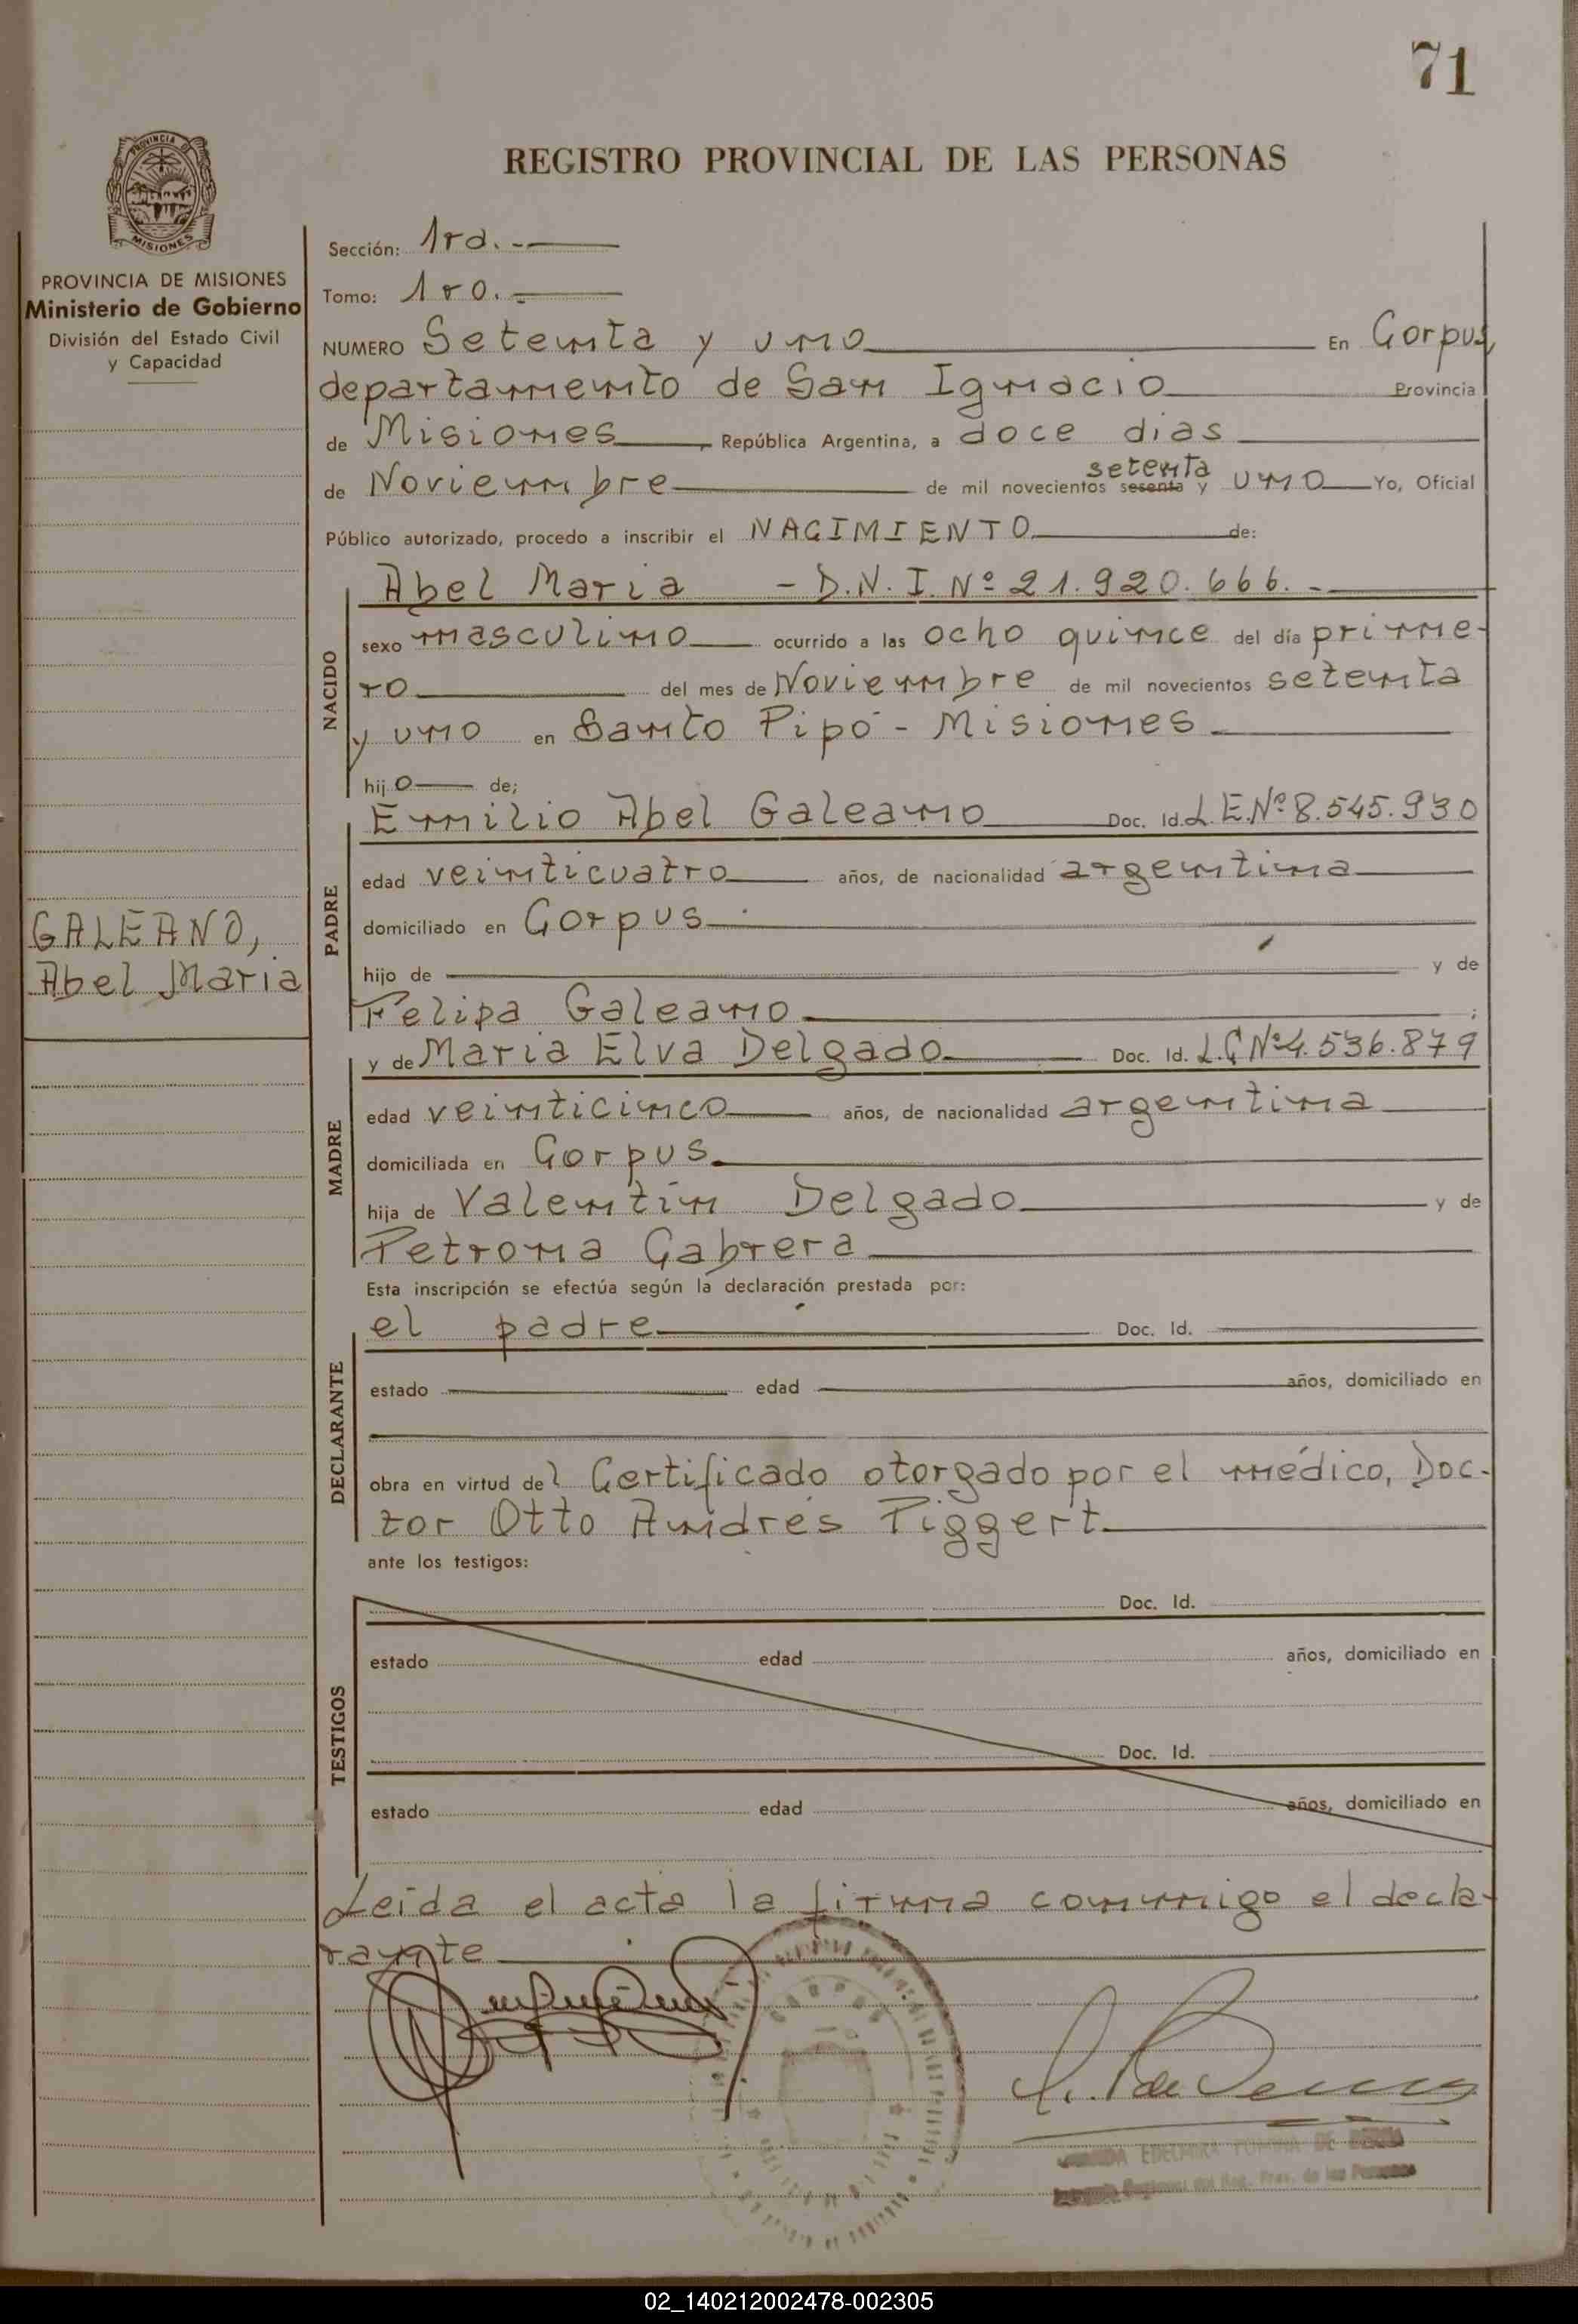 71
REGISTRO PROVINCIAL DE LAS PERSONAS
PROVINCIA DE MISIONES
PROVINCIA DE MISIONES
Ministerio de Gobierno
División del Estado Civil
y Capacidad
GALEANO,
Abel Maria
Sección: 1ra.-
Tomo: 1ro.-
NUMERO Setenta y uno En Corpus,
departamento de San Ignacio Provincia
de Misiones, República Argentina, a doce dias
setenta
de Noviembre de mil novecientos sesenta y uno Yo, Oficial
Público autorizado, procedo a inscribir el NACIMIENTO de:
NACIDO
Abel Maria - D.N.I. Nº 21.920.666.-
sexo masculino ocurrido a las ocho quince del día prime-
ro del mes de Noviembre de mil novecientos setenta
y uno en Santo Pipó - Misiones
hijo de;
PADRE
Emilio Abel Galeano Doc. Id. L.E.Nº 8.545.930
edad veinticuatro años, de nacionalidad argentina
domiciliado en Corpus
hijo de y de
Felipa Galeano ;
MADRE
y de Maria Elva Delgado Doc. Id. L.C Nº 4.536.879
edad veinticinco años, de nacionalidad argentina
domiciliada en Corpus
hija de Valentín Delgado y de
Petrona Cabrera
Esta inscripción se efectúa según la declaración prestada por:
DECLARANTE
el padre Doc. Id.
estado edad años, domiciliado en
obra en virtud del Certificado otorgado por el médico, Doc-
tor Otto Andrés Piggert
ante los testigos:
TESTIGOS
Doc. Id.
estado edad años, domiciliado en
Doc. Id.
estado edad años, domiciliado en
Leída el acta la firma conmigo el decla-
rante
CORPUS
EDELMIRA DE
del Reg. Prov. de las Personas
02_140212002478-002305